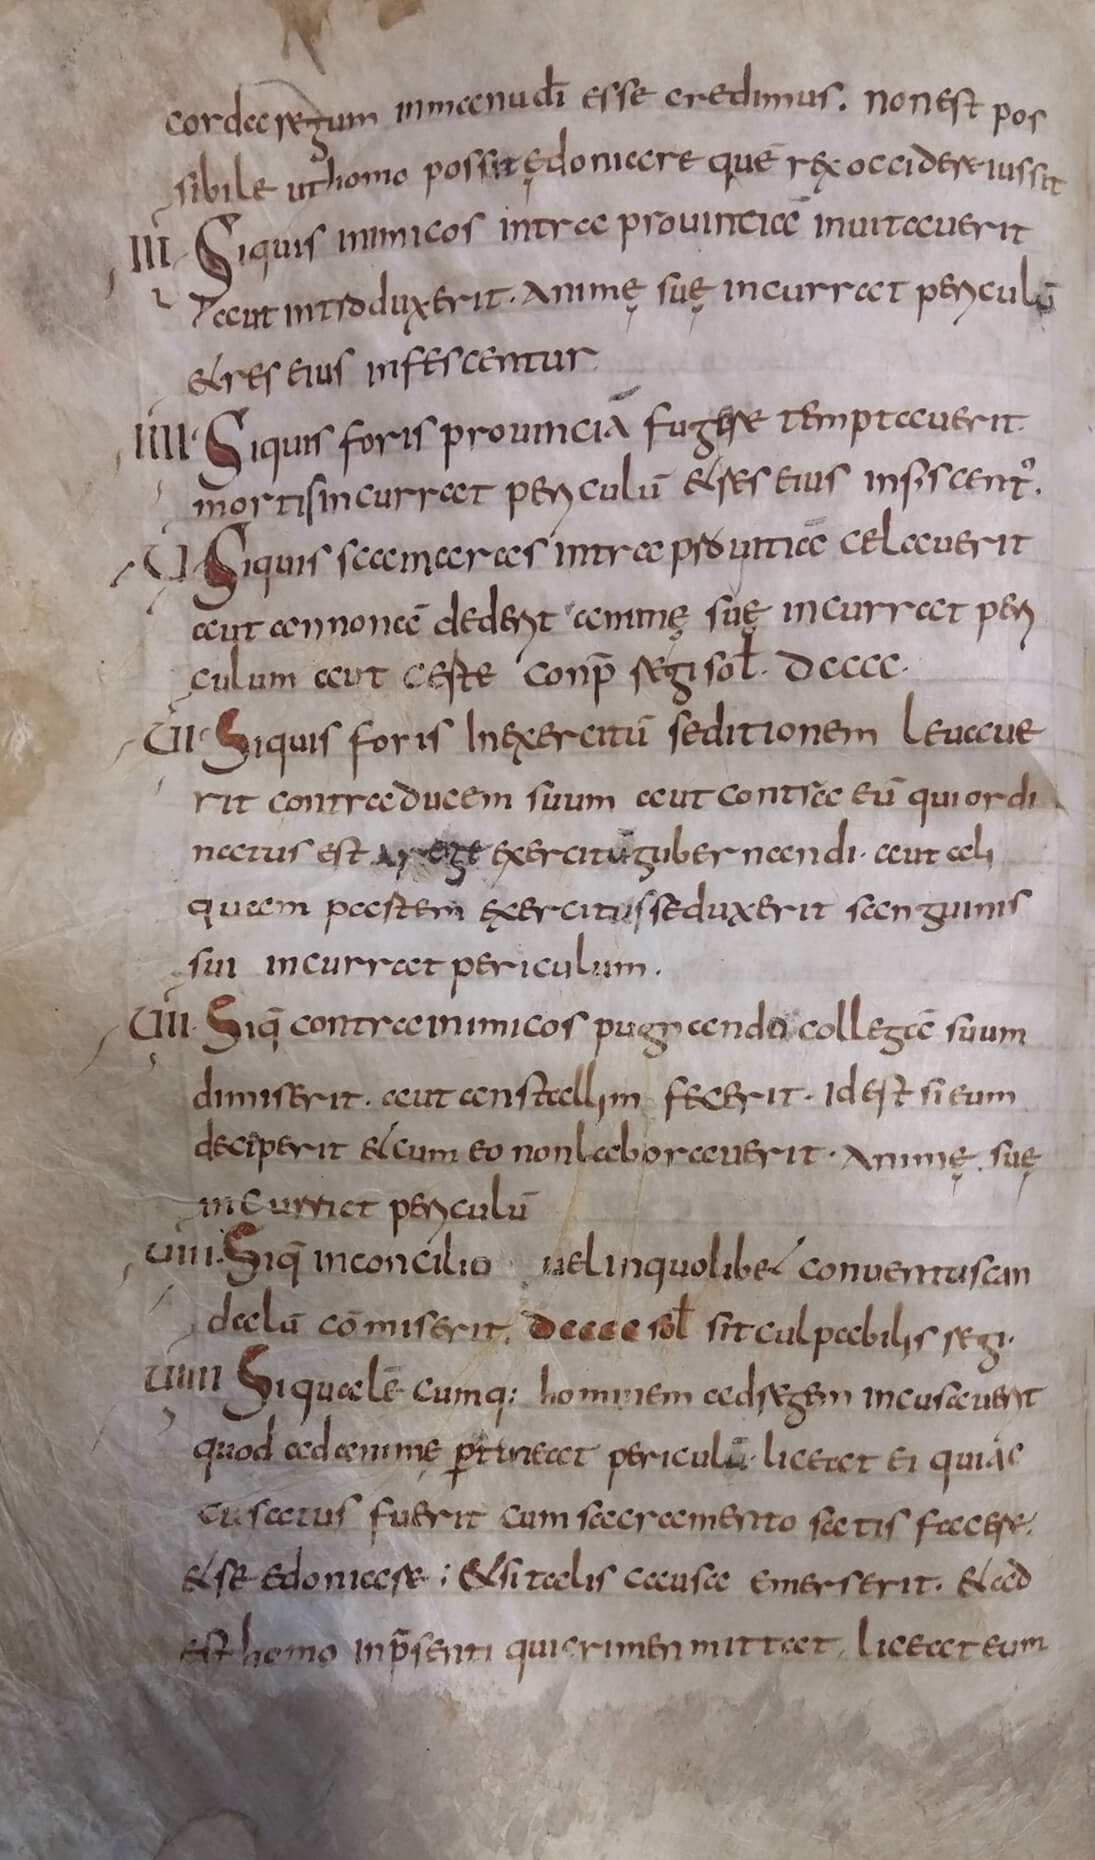 corda regum inmanudī esse credimus. non est pos
sibile ut homo possit ędoniare quē rex occidere iussit
III Siquis inimicos intra prouinciā inuitauerit
aut introduxerit. Animę suę incurrat periculū
et res eius infescentur.
IIII Siquis foris prouinciā fugere temptauerit
mortis incurrat periculū et res eius infiscent᾽.
U Siquis scamaras intra prouinciā celauerit
aut annonā dederit animę suę incurrat peri
culum aut certe conp̄ regi sol̄. dcccc.
UI Siquis foris In exercitū seditionem leuaue
rit contra ducem suum aut contra eū qui ordi
natus est a rege exercitū gubernandi. aut ali
quam partem exercitus seduxerit sanguinis
sui incurrat periculum.
UII. Siq̄ contra inimicos pugnando collegā suum
dimiserit. aut anstallim fecerit. Id est si eum
deciperit et cum eo non laborauerit. Animę suę
incurrat periculū
UIII. Siq̄ in concilio uel in quolibet conuentu scan
dalū cōmiserit. dcccc sol̄ sit culpabilis regi.
UIIII Siqualē cumq: hominem ad regem incusauerit
quod ad animę ꝑtineat periculū. liceat ei qui ac
cusatus fuerit cum sacramento satis facere.
et se edoniare; Et si talis causa emerserit. et ad
est homo in p̄senti qui crimen mittat, liceat eum